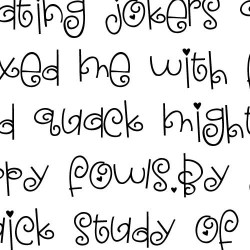 ating jokers a
xed me with f
d quack might
ppy fowls.By
ick study of